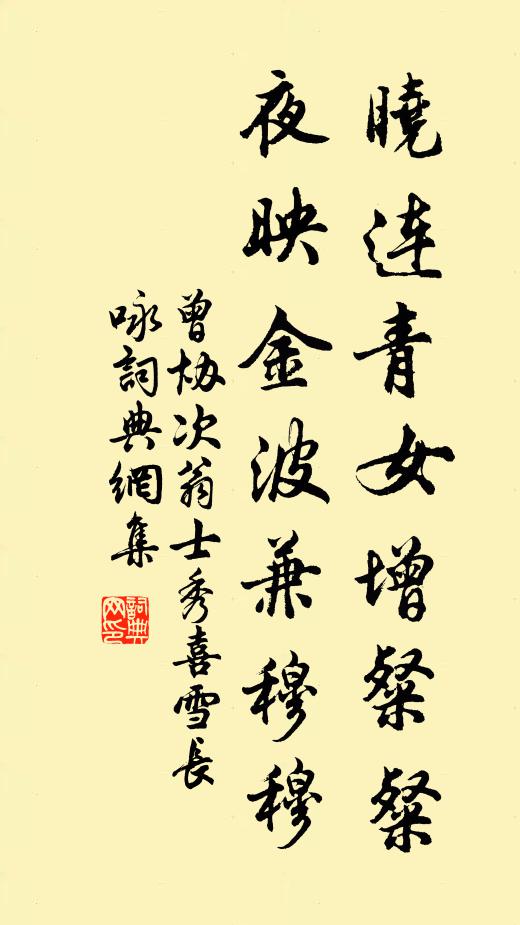 曉连青女增粲粲
夜映金波兼穆穆
曾协次翁士秀喜雪長
咏詞典網集
詞典
网印